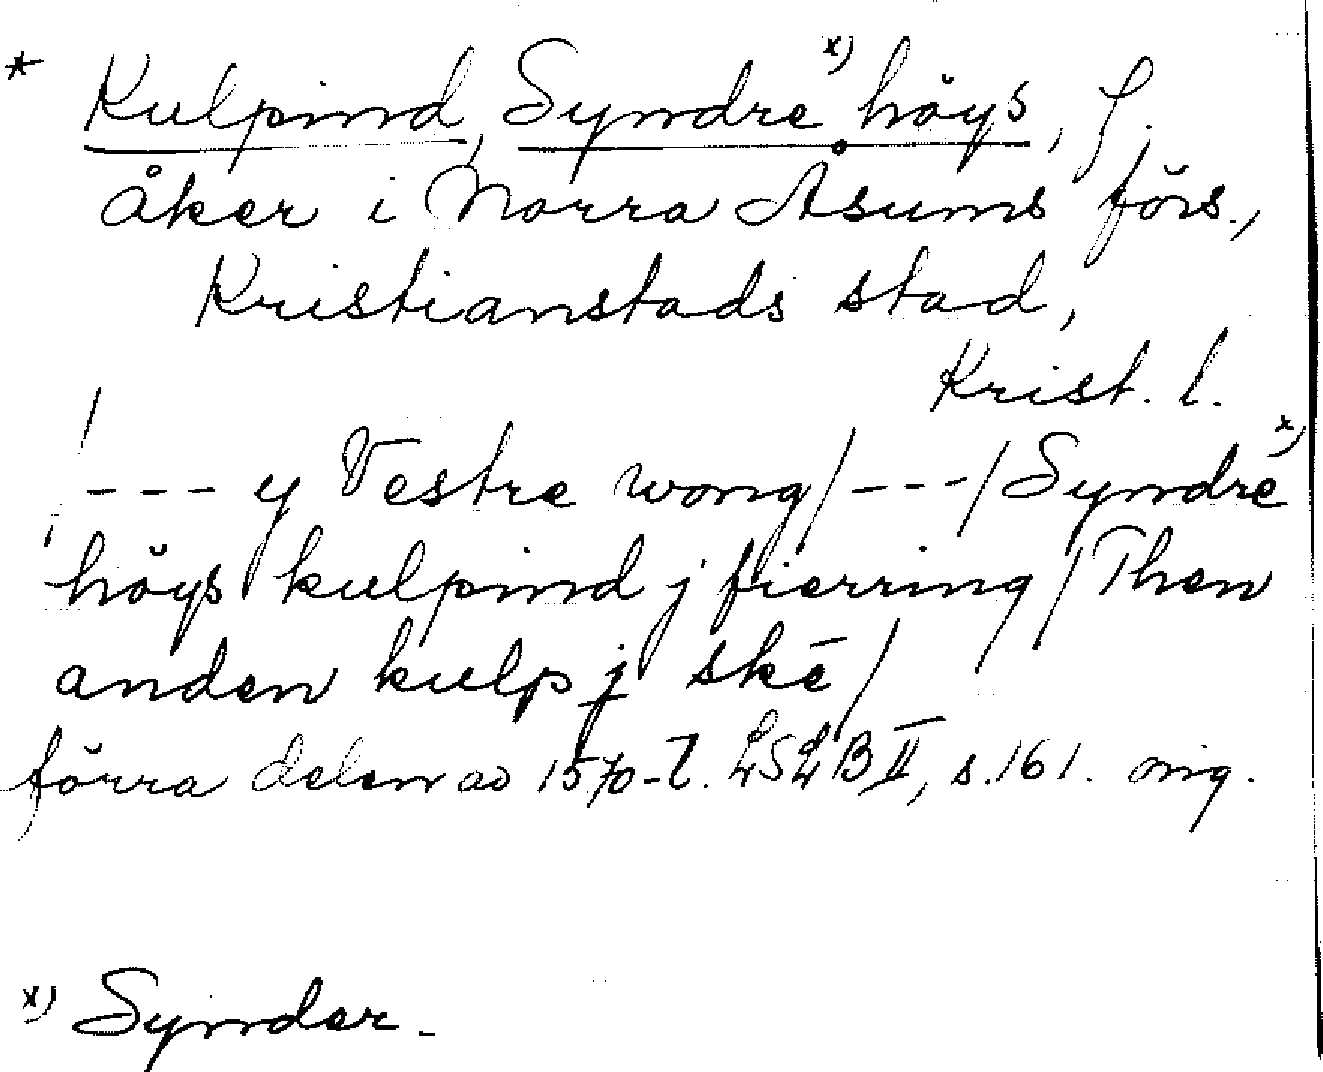 * Kulpind, Syndre x) höys, f.
åker i Norra Åsums förs.,
Kristianstads stad,
Krist. l.
/--- y Vestre wong/---/Syndre x)
höys kulpind j fierring/Then
anden kulp j skē/
förra delen av 1570-t. LSLB II, s.161. orig.
x) Synder.